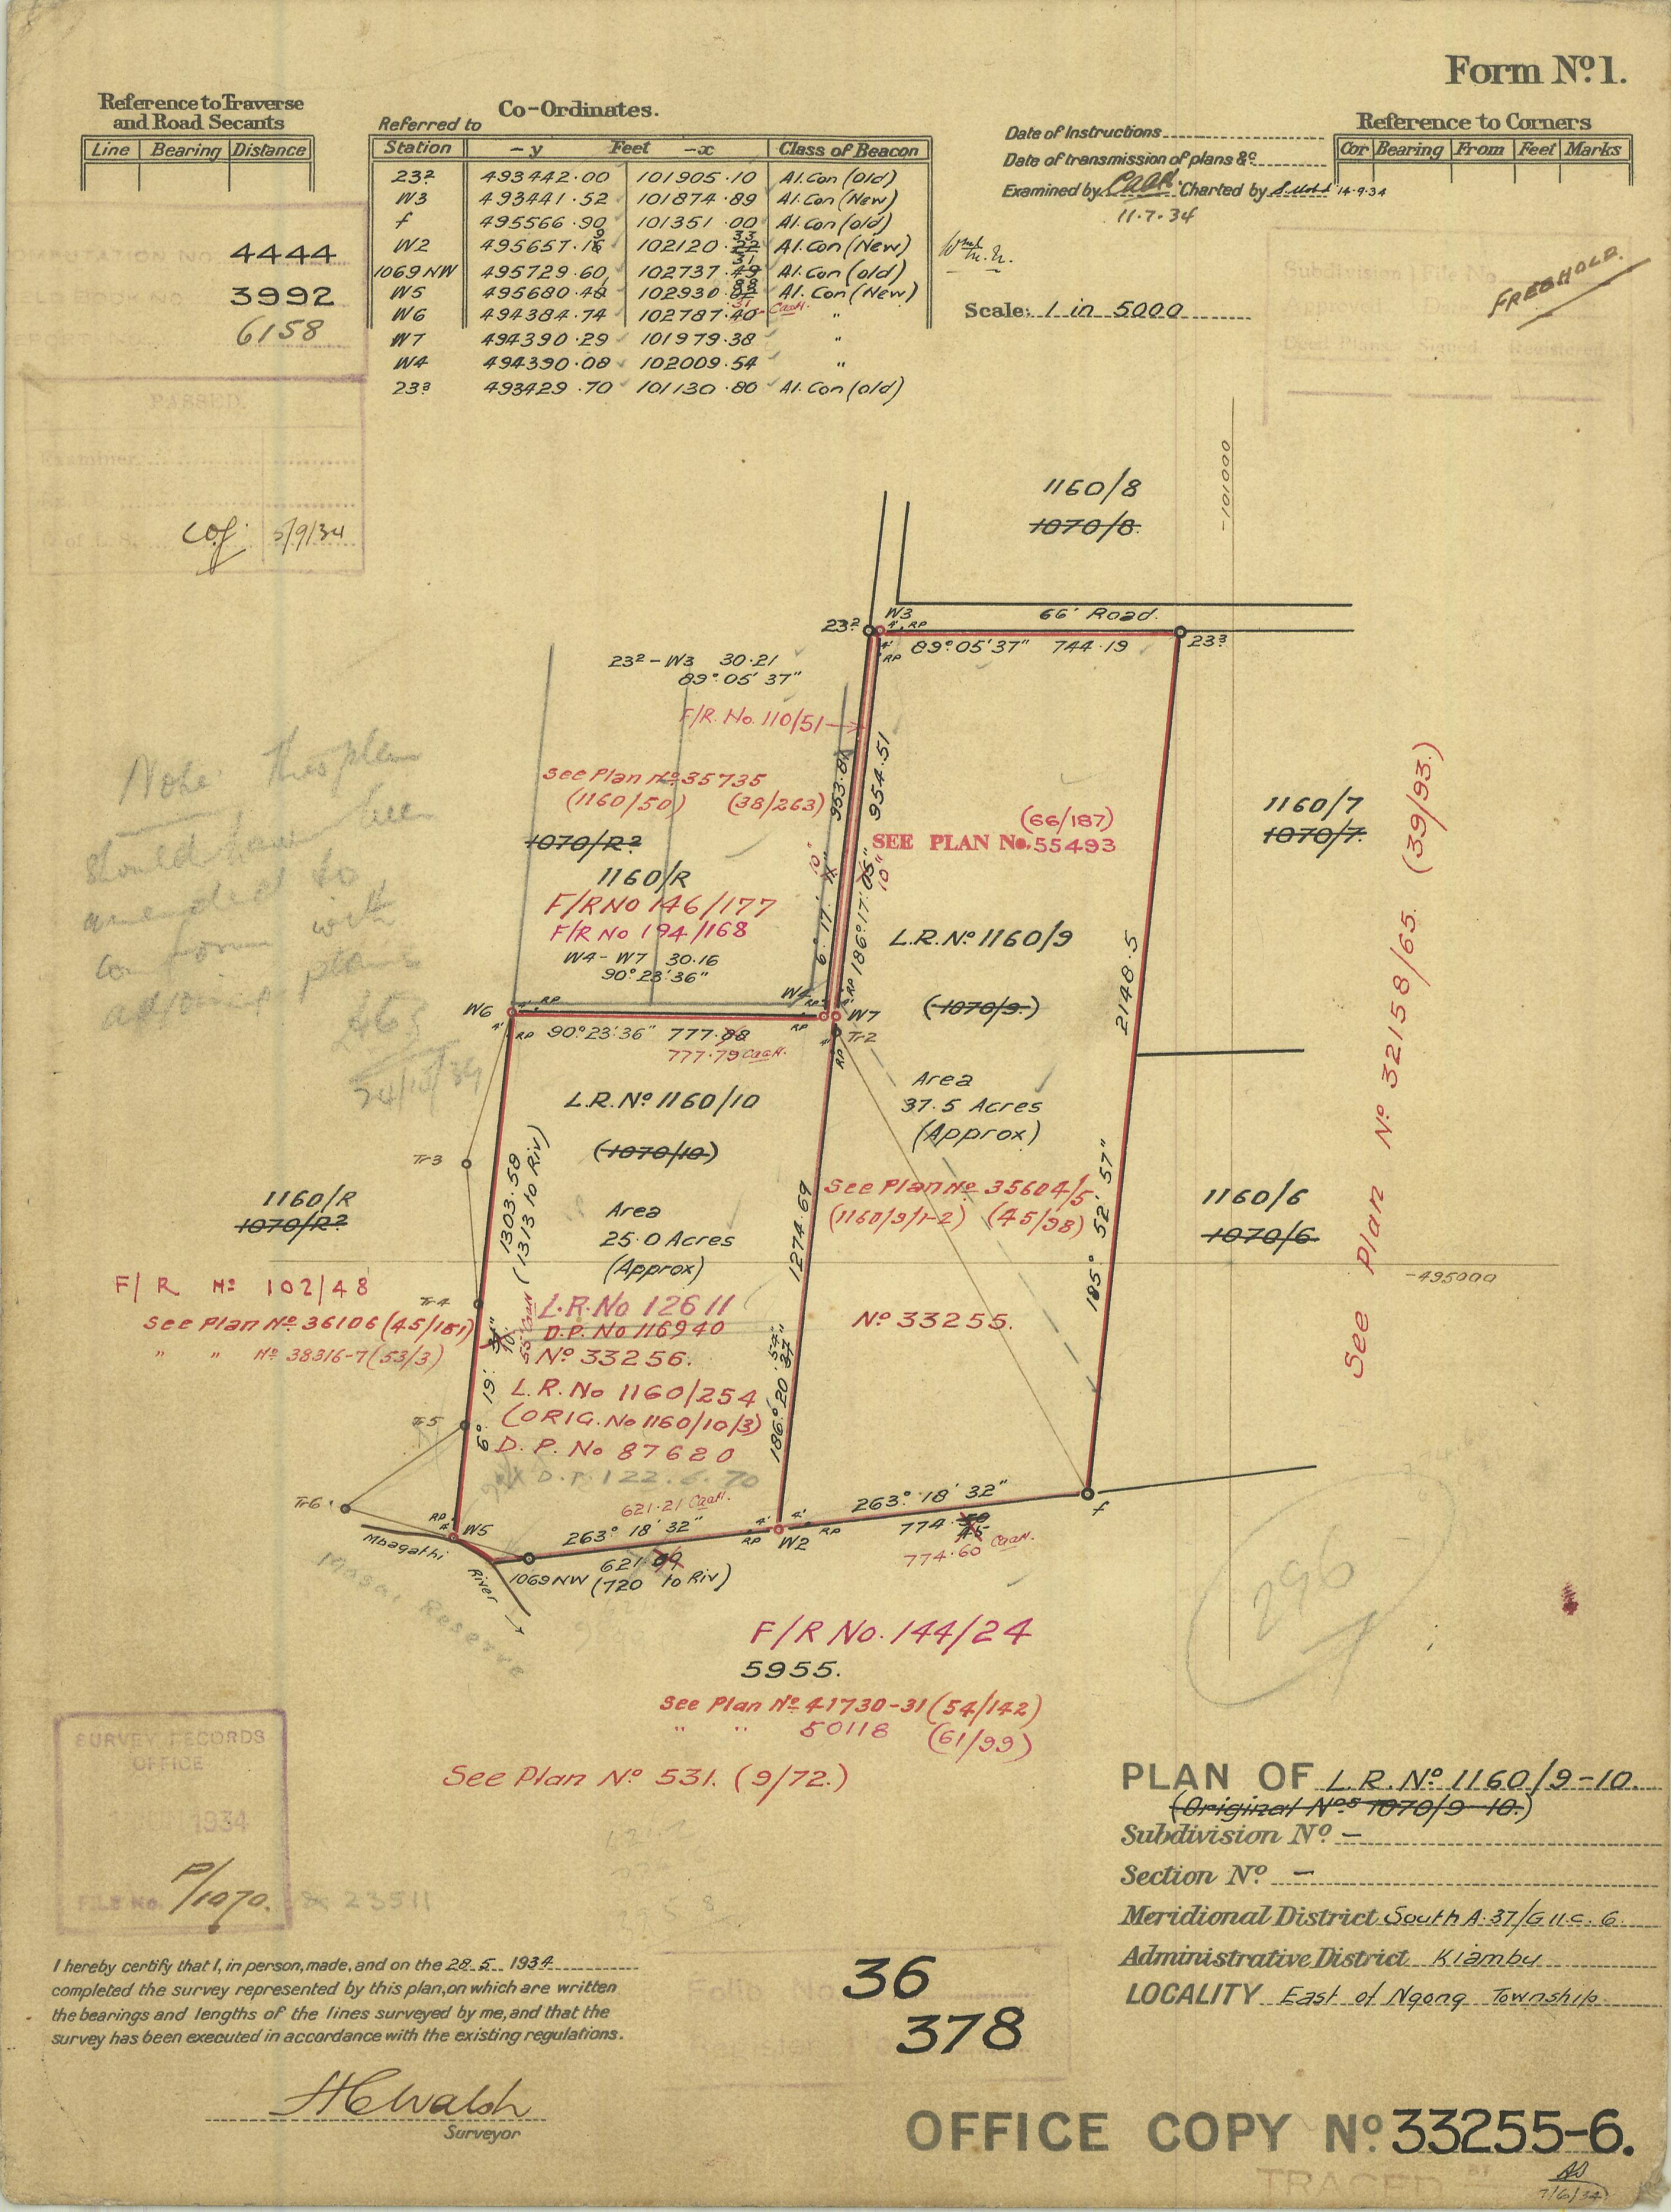 Form No. 1.
Reference to Traverse
and Road Secants
Line Bearing Distance
Co-Ordinates.
Referred to
Station -y Feet -x Class of Beacon
23² 493442.00 101905.10 Al.Con (old)
W3 493441.52 101874.89 Al.Con (New)
f 495566.90 101351.00 Al.Con (old)
W2 495657. 102120. Al.Con (New)
1069NW 495729.60 102737. Al.Con (old)
W5 495680. 102930. Al.Con (New)
W6 494384.74 102787. "
W7 494390.29 101979.38 "
W4 494390.08 102009.54 "
23³ 493429.70 101130.80 Al.Con (old)
Date of Instructions
Date of transmission of plans &c
Examined by Charted by 14.9.34
11.7.34
Reference to Corners
Cor Bearing From Feet Marks
COMPUTATION No. 4444
3992
6158
Scale: 1 in 5000
Subdivision File No.
FREEHOLD.
PASSED.
Examiner
5/9/34
-101000
1160/8
1070/8
66' Road.
23² W3 4' RP
4' RP 89° 05' 37" 744.19 23³
23² - W3 30.21
89° 05' 37"
F/R. No. 110/51
See Plan No 35735
(1160/50) (38/263)
1070/R²
1160/R
F/R NO 146/177
F/R No 194/168
W4 - W7 30.16
90° 23' 36"
954.51
186° 17' 05"
10"
6° 17'
10"
(66/187)
SEE PLAN No. 55493
L.R. No 1160/9
(1070/9.)
1160/7
1070/7.
See Plan No 32158/65. (39/93.)
Note: This plan
should have been
amended to
conform with
adjoining plans
W6 4' RP W4 RP W7
4' RP 90° 23' 36" 777.88 RP 4' RP Tr2
777.79 CaaH.
2148.5
185° 52' 57"
Area
37.5 Acres
(Approx)
L.R. No 1160/10
(1070/10)
Tr3
1303.58
(1313 to Riv)
Area
25.0 Acres
(Approx)
1274.69
See Plan No 35604/5
(1160/9/1-2) (45/98)
1160/R
1070/R²
1160/6
1070/6
-495000
F/R No 102/48
See Plan No 36106 (45/181)
" " No 38316-7 (53/3)
Tr4
L.R. No 12611
D.P. No 116940
No 33256.
No 33255.
L.R. No 1160/254
(ORIG. No 1160/10/3)
D.P. No 87620
6° 19'
186° 20'
Tr5
Tr6
621.21 CaaH.
RP 4' W5 263° 18' 32" 4' RP W2 4' RP 263° 18' 32" f
621.
774.
774.60 CaaH.
1069NW (720 to Riv)
Mbagathi
River
Masai Reserve
296
F/R No. 144/24
5955.
See Plan No 41730-31 (54/142)
" " 50118 (61/99)
See Plan No 531. (9/72.)
SURVEY RECORDS
OFFICE
1934
FILE No. P/1070. & 23511
PLAN OF L.R. No 1160/9-10.
(Original Nos 1070/9-10.)
Subdivision No -
Section No -
Meridional District South A.37/G II.c. 6.
Administrative District Kiambu
LOCALITY East of Ngong Township
I hereby certify that I, in person, made, and on the 28.5.1934
completed the survey represented by this plan, on which are written
the bearings and lengths of the lines surveyed by me, and that the
survey has been executed in accordance with the existing regulations.
HCWalsh
Surveyor
Folio No. 36
Register 378
OFFICE COPY No. 33255-6.
TRACED BY
7/6/34